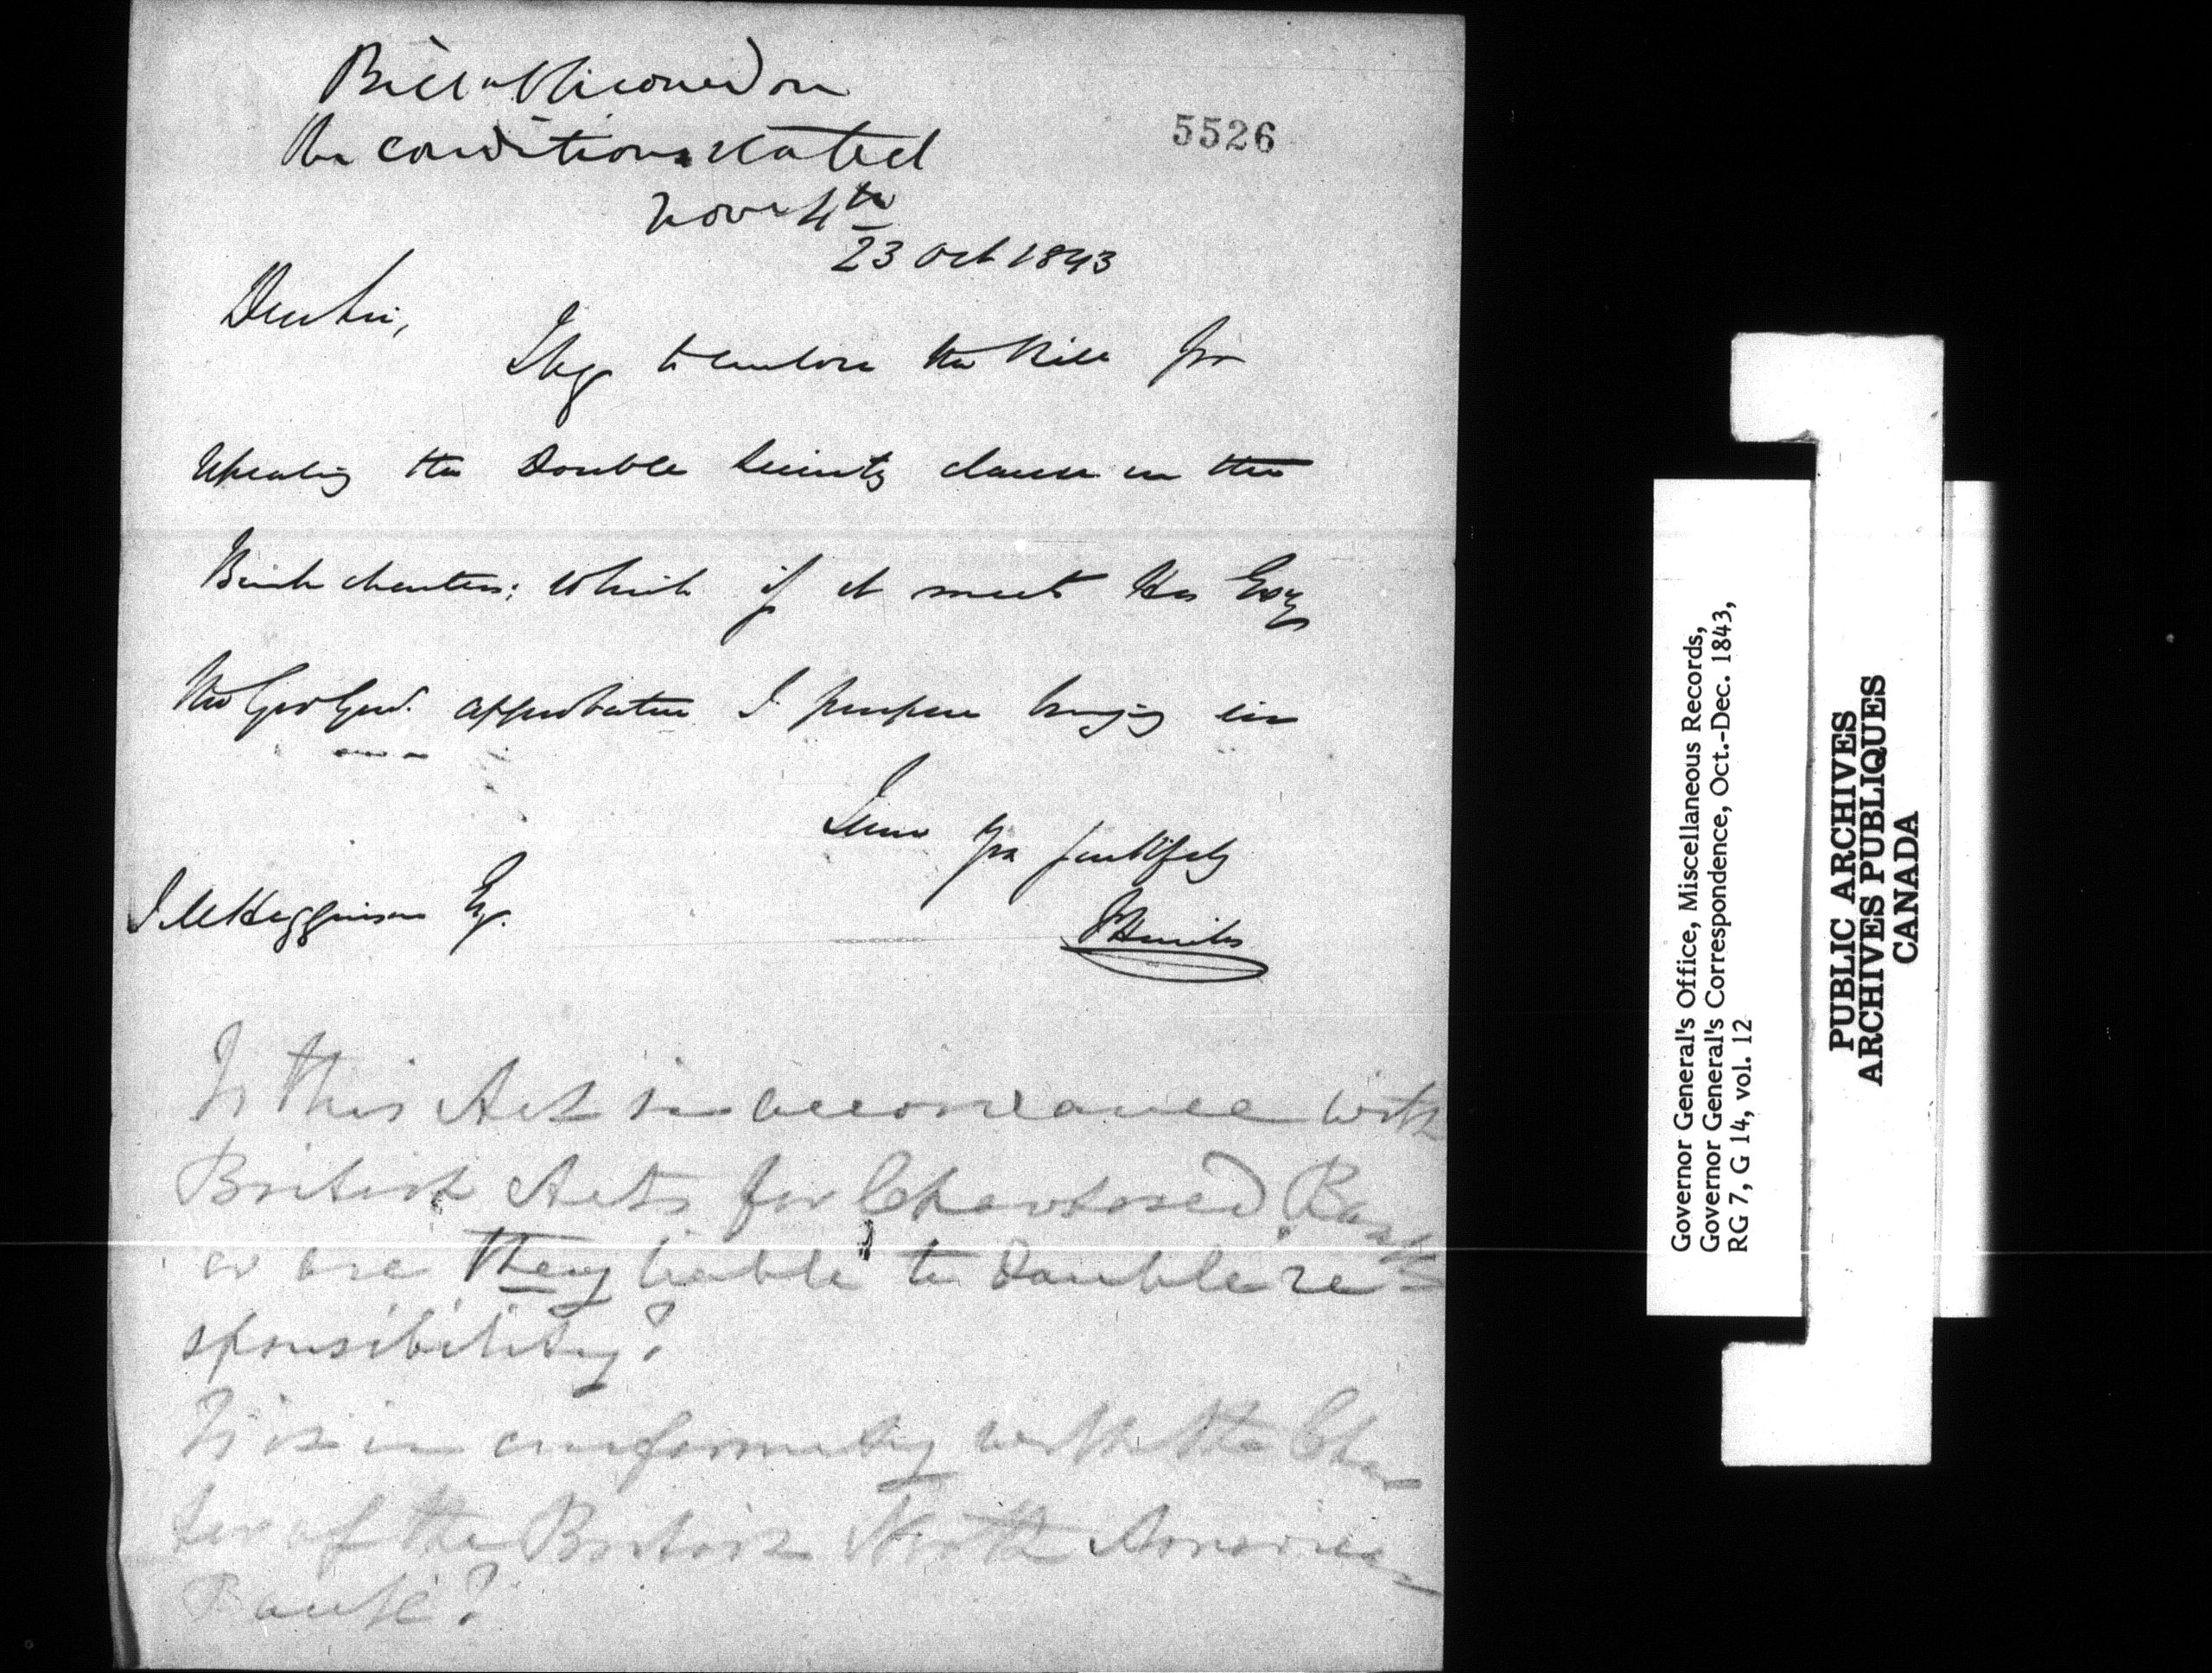 Bill sanctioned on
the conditions stated
Novr 4th
5526
23 Oct 1843
Dear Sir,
I beg to enclose the Bill for
repealing the Double Security clause in the
Bank charters: which if it meet His Excy
the Gov Genl. approbation I propose bringing in
Yrs faithfully
J M Higginson Esq.
F Hincks
Is this Act in accordance with
British Acts for Chartered Banks
or are they liable to double re-
sponsibility?
Is it in conformity with the Char-
ter of the British North American
Bank?
Governor General's Office, Miscellaneous Records,
Governor General's Correspondence, Oct.-Dec. 1843,
RG 7, G 14, vol. 12
PUBLIC ARCHIVES
ARCHIVES PUBLIQUES
CANADA